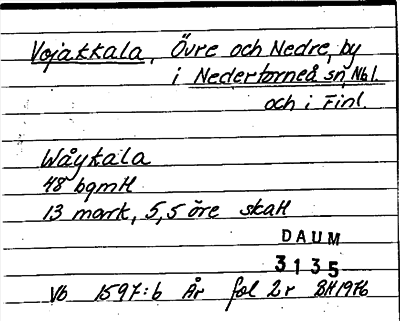 Vojakkala, Övre och Nedre, by
i Nedertorneå sn, Nbl.
och i Finl.
Wåykala
48 bgmH
13 mark, 5,5 öre skatt
DAUM
3135
Vb 1597:6 År fol 2r BH1976